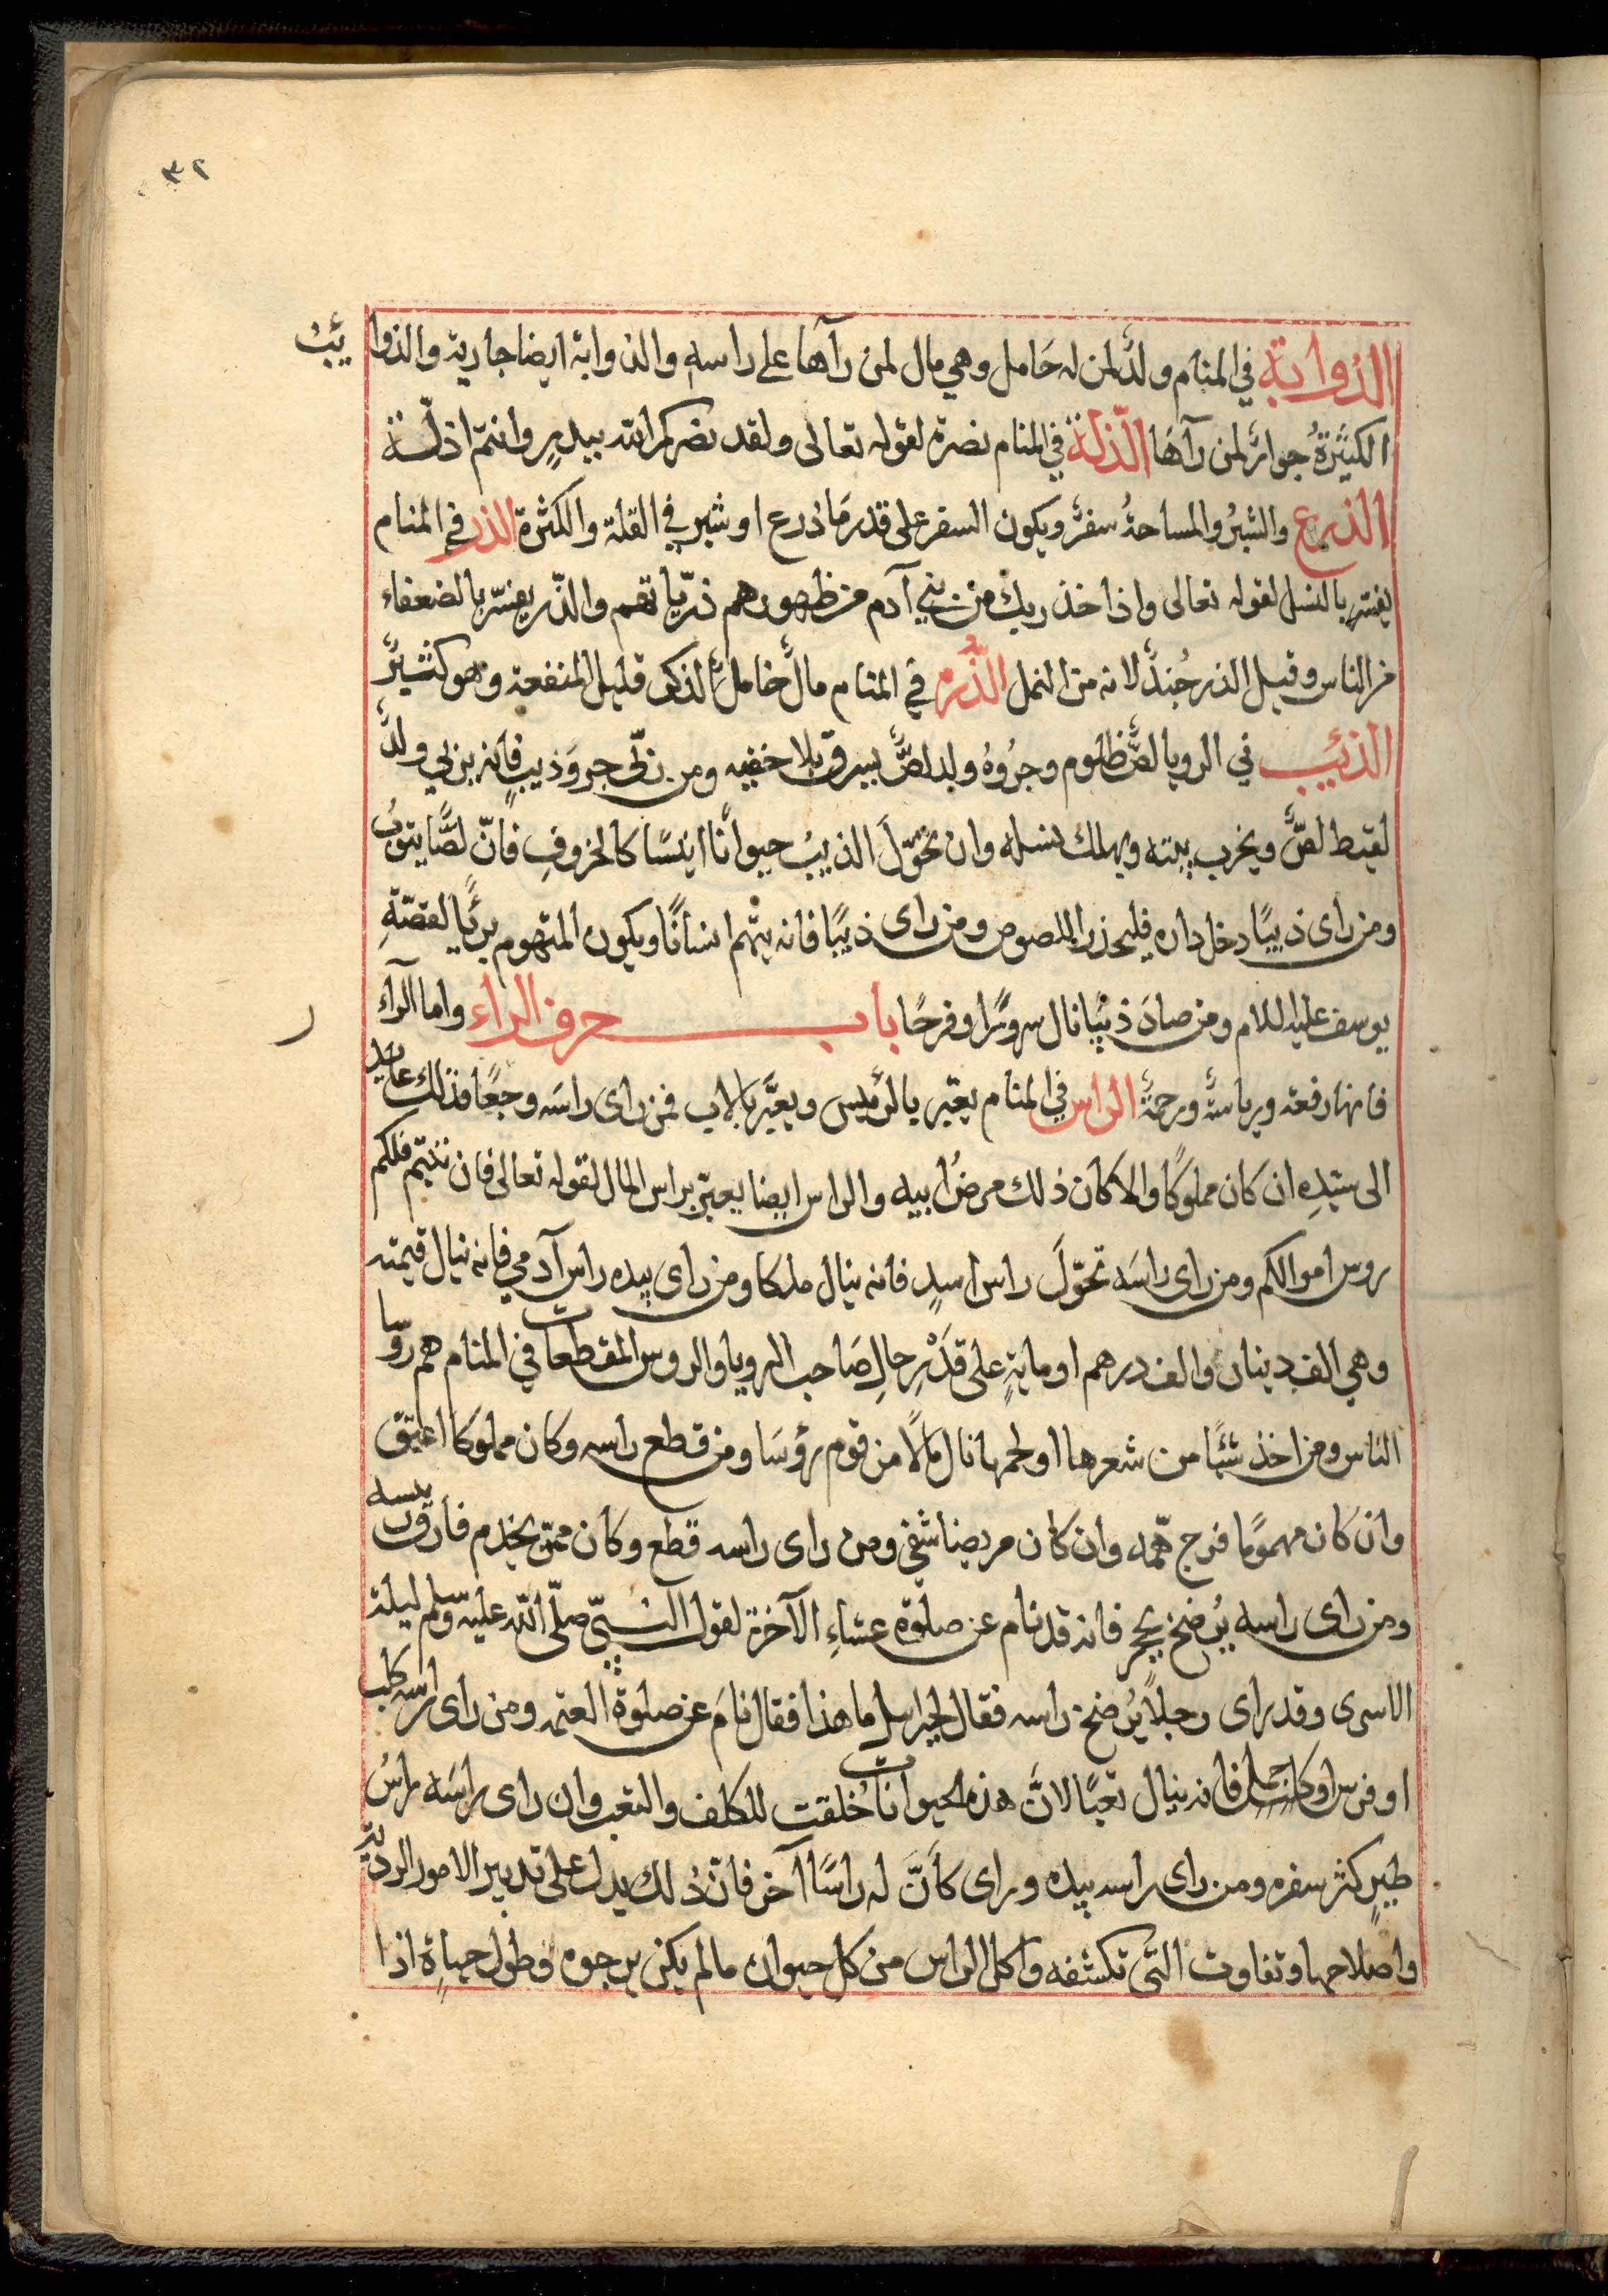 ٣٢
الذوابة في المنام ولدٌ لمن له حَامل وهي مال لمن رآها على راسه والذوابة ايضا جارية والذوايبُ
الكثيرَةُ جوارٌ لمن رآهَا الذلّة في المنام نصرة لقوله تعالى ولقد نصركم الله ببدرٍ وانتم اذلّة
الذرع والشبرُ والمساحةُ سفرٌ ويكون السفر على قدر مَا ذرع او شبر في القلة والكثرة الذر في المنام
يفسّر بالنسل لقوله تعالى واذ اخذ ربك من بني آدم من ظهورهم ذرّياتهم والذّر يفسّر بالضعفاء
من الناس وقيل الذر جُندٌ لانه من النمل الذُّرة في المنام مالٌ خاملُ الذكر قليل المنفعة وهو كثيرٌ
الذئيب في الرويا لصٌّ ظلوم وجروُهُ ولد لصٌّ يسرق بلا خفيه ومن ربّى جروَ ذيبٍ فانه يربي ولدٌ
لقيط لصٌّ ويخرب بيته ويهلك نسله وان تحوّلَ الذيبُ حيوانًا انيسًا كالخروفِ فانّ لصًّا يتوبُ
ومن راى ذيبًا دخل داره فليحذر اللصوص ومن راى ذيبًا فانه يتهم انسانًا ويكون المتهوم بريًّا لقصّةِ
يوسف عليه اللام ومن صادَ ذئبًا نال سرورًا وفرحًا باب حرف الراء واما الرآء
ر
فانها رفعة ورياسةٌ ورحمةٌ الراس في المنام يعبّر بالرئيس ويعبَّر بالاب فمن راى راسَه وجعًا فذلك عايد
الى سيّدِه ان كان مملوكًا والا كان ذلك مرضُ ابيه والراس ايضا يعبّر براس المال لقوله تعالى فان تبتم فلكم
روس اموالكم ومن راى راسَه تحوّلَ راس اسدٍ فانه ينال ملكا ومن راى بيده راس آدمي فانه ينال قيمته
وهي الف دينار والف درهم او مايةٍ على قدْرِ حالِ صَاحب الرويا والروس المقطعات في المنام هم روسا
الناس ومن اخذ شئًا من شعرها او لحمها نال مالًا من قوم رؤسَا ومن قطع راسه وكان مملوكا اعتق
وان كان مهمومًا فرج همّه وان كان مريضا شفي ومن راى راسه قطع وكان ممن يخدم فارق رييسه
ومن راى راسه يُرضخ بحجر فانه قد نام عن صلوة عشاءِ الآخرة لقول النبيّ صلّى الله عليه وسلم ليلة
الاسرى وقد راى رجلاً يُرضخ راسه فقال لجبراىل ما هذا فقال نامَ عن صلوة العتمة ومن راى راسه كلب
او فرس او كان جمل فانه ينال تعبًا لانَّ هذه الحيوانات خُلقت للكلف والتعب وان راى راسَه راسُ
طيرٍ كثر سفره ومن راى راسه بيده وراى كاَنَّ له راسًا آخر فانّ ذلك يدل على تدبير الامور الرديّة
واصلاحها وتفاوت التي تكشفه واكل الراس من كل حيوان مالم يكن يرجوه وطول حياةِ اذا